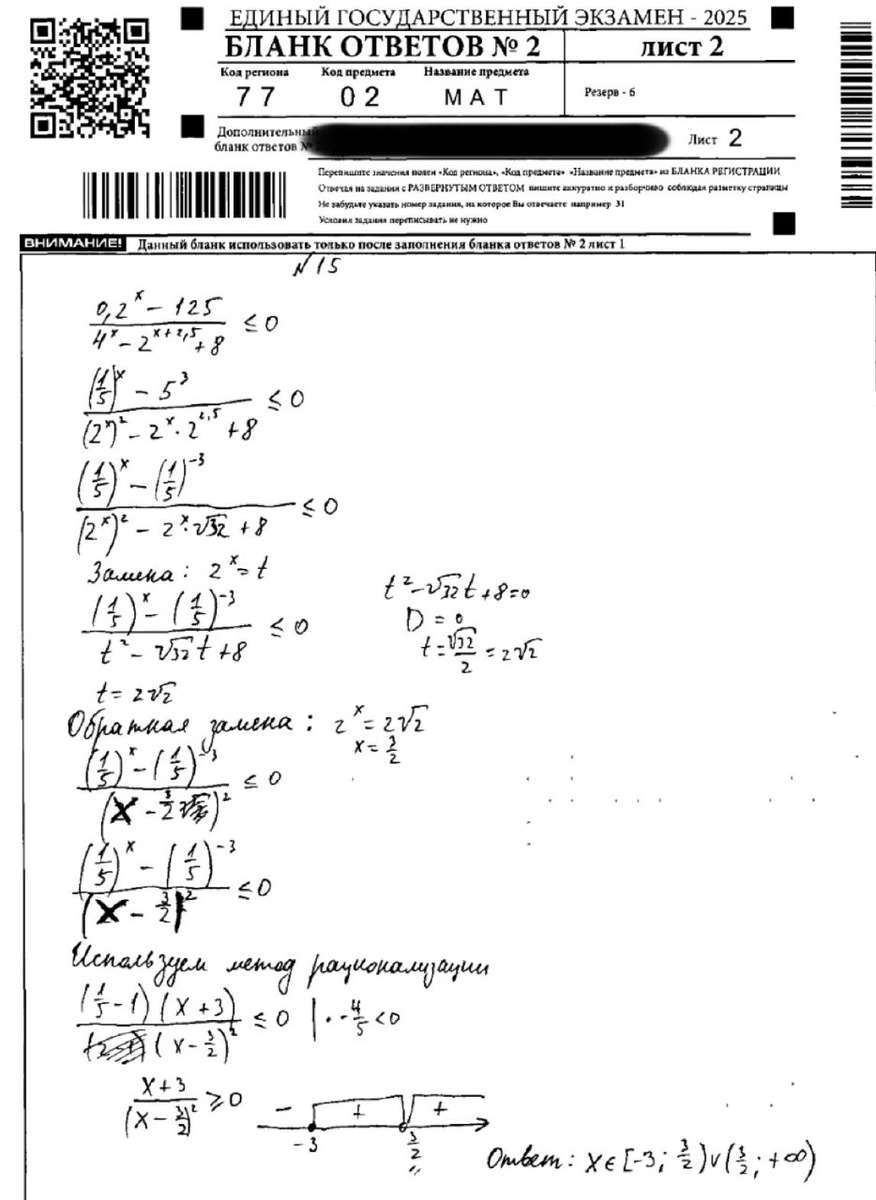 ЕДИНЫЙ ГОСУДАРСТВЕННЫЙ ЭКЗАМЕН - 2025
БЛАНК ОТВЕТОВ № 2 лист 2
Код региона Код предмета Название предмета
7 7 0 2 М А Т Резерв - 6
Дополнительный
бланк ответов № Лист 2
Перепишите значения полей «Код региона», «Код предмета» «Название предмета» из БЛАНКА РЕГИСТРАЦИИ
Отвечая на задания с РАЗВЕРНУТЫМ ОТВЕТОМ пишите аккуратно и разборчиво соблюдая разметку страницы
Не забудьте указать номер задания, на которое Вы отвечаете например 31
Условия задания переписывать не нужно
ВНИМАНИЕ! Данный бланк использовать только после заполнения бланка ответов № 2 лист 1
№15
(0,2^x - 125)/(4^x - 2^(x+2,5) + 8) ≤ 0
((1/5)^x - 5^3)/((2^x)^2 - 2^x · 2^(2,5) + 8) ≤ 0
((1/5)^x - (1/5)^(-3))/((2^x)^2 - 2^x · √32 + 8) ≤ 0
Замена: 2^x = t
((1/5)^x - (1/5)^(-3))/(t^2 - √32 t + 8) ≤ 0
t^2 - √32 t + 8 = 0
D = 0
t = √32/2 = 2√2
t = 2√2
Обратная замена: 2^x = 2√2
x = 3/2
((1/5)^x - (1/5)^(-3))/(x - 3/2)^2 ≤ 0
((1/5)^x - (1/5)^(-3))/(x - 3/2)^2 ≤ 0
Используем метод рационализации
((1/5 - 1)(x + 3))/(x - 3/2)^2 ≤ 0 | · -4/5 < 0
(x + 3)/(x - 3/2)^2 ≥ 0
- + +
-3 3/2
Ответ: x ∈ [-3; 3/2) ∪ (3/2; +∞)